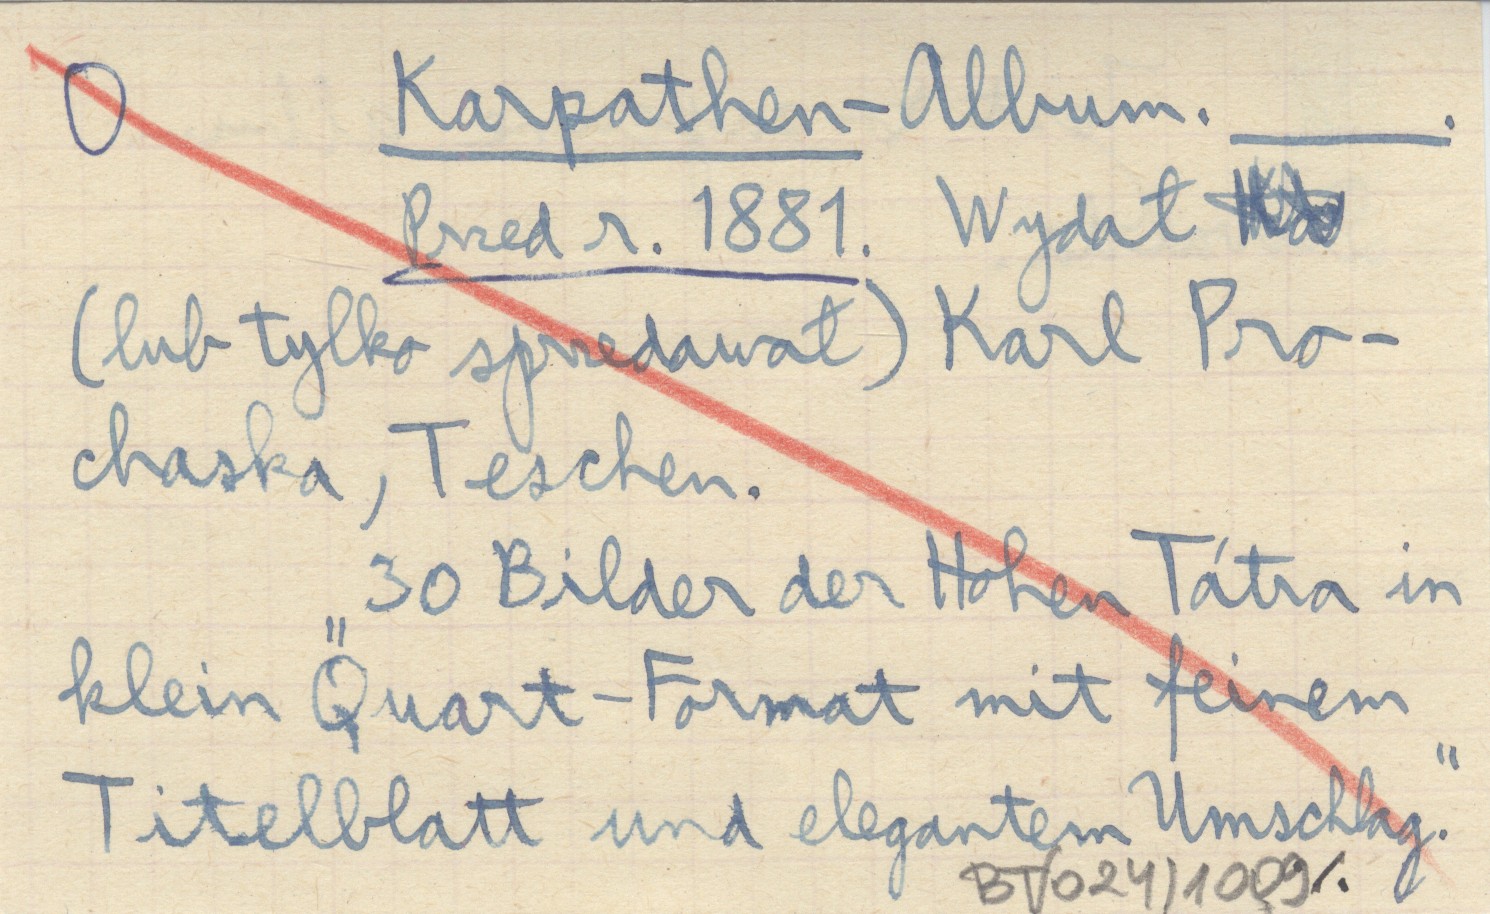 Karpathen-Album. ______.
Przed r. 1881. Wydał
(lub tylko sprzedawał) Karl Pro-
chaska, Teschen.
„30 Bilder der Hohen Tátra in
klein Quart-Format mit feinem
Titelblatt und elegantem Umschlag."
BT(024)1009/.